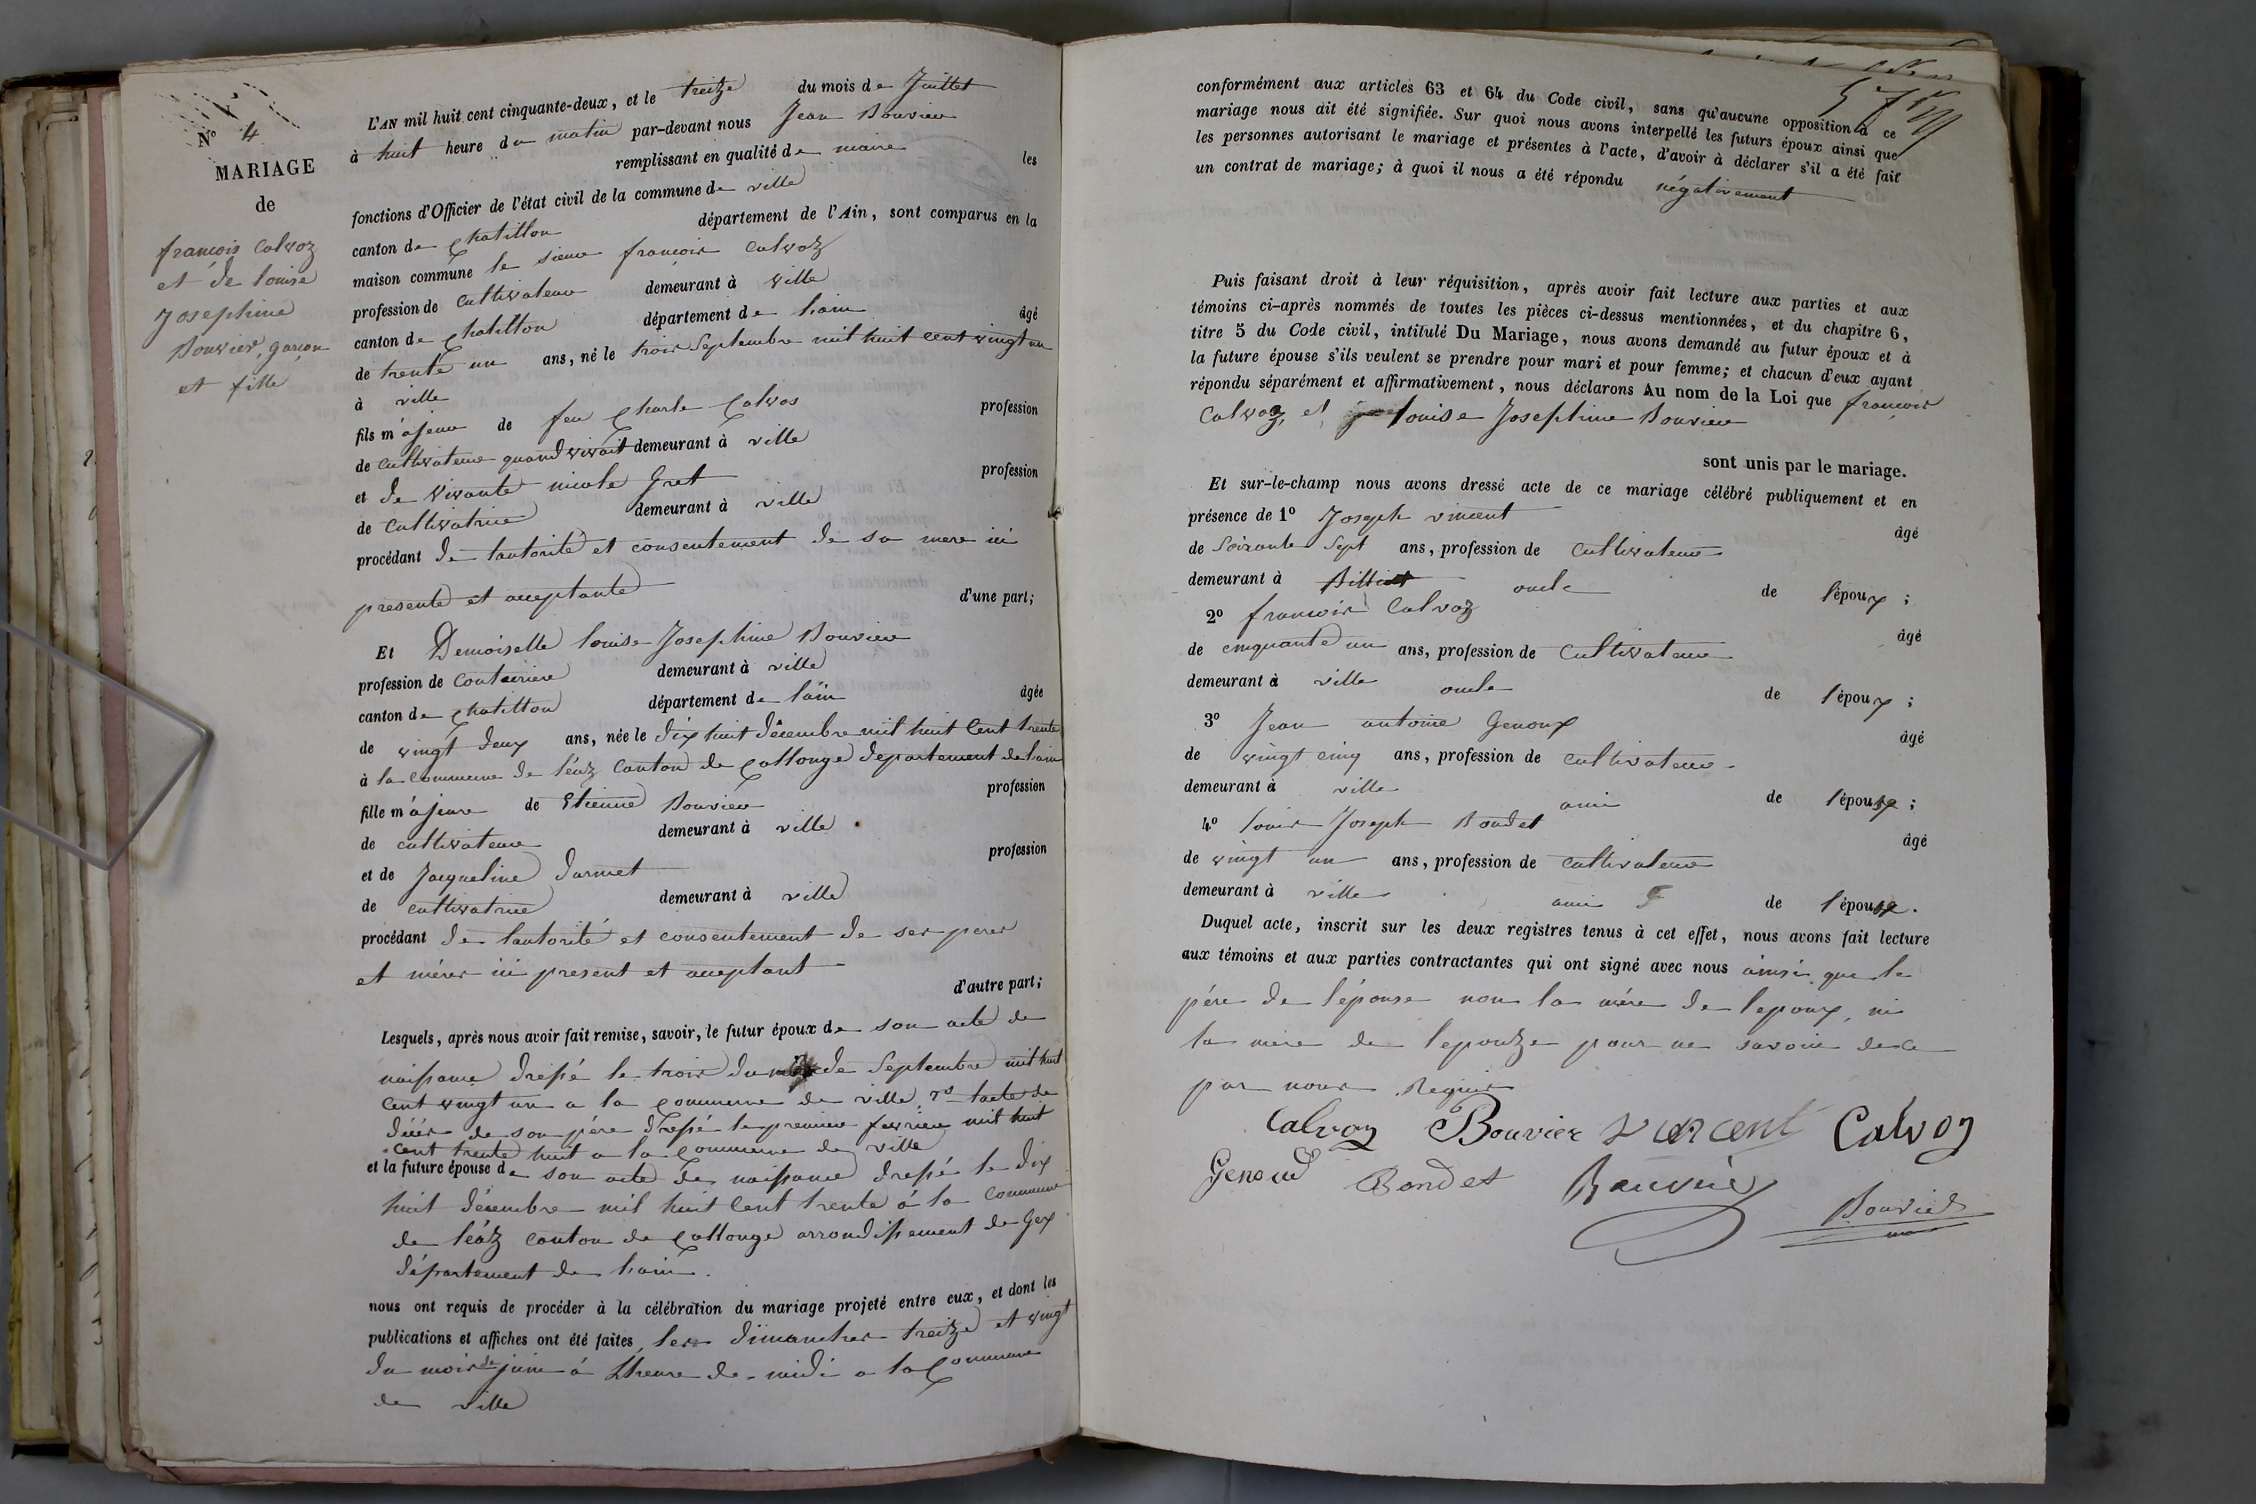 N° 4
MARIAGE
de
françois Calvoz
et de louise
Josephine
Bouvier, garçon
et fille
L'AN mil huit cent cinquante-deux, et le treitze du mois de Juillet
à huit heure du matin par-devant nous Jean Bouvier
remplissant en qualité de maire les
fonctions d'Officier de l'état civil de la commune de ville
canton de Chatillon département de l'Ain, sont comparus en la
maison commune le sieur françois Calvoz
profession de Cultivateur demeurant à ville
canton de Chatillon département de lain âgé
de trente un ans, né le trois Septembre mil huit cent vingt un
à ville
fils majeur de feu Charle Calvos profession
de cultivateur quand vivait demeurant à ville
et de vivante nicole Gret profession
de Cultivatrice demeurant à ville
procédant de lautorité et consentement de sa mere ici
presente et acceptante d'une part;
Et Demoiselle louise Josephine Bouvier
profession de Couturiere demeurant à ville
canton de Chatillon département de láin âgée
de vingt deux ans, née le dix huit décembre mil huit Cent trente
à la Commune de léaz Canton de Collonge departement de lain
fille majeure de Etienne Bouvier profession
de cultivateur demeurant à ville
et de Jacqueline Darmet profession
de cultivatrice demeurant à ville
procédant de lautorité et consentement de ses peres
et méres ici present et acceptant
d'autre part;
Lesquels, après nous avoir fait remise, savoir, le futur époux de son acte de
naissance dressé le trois du de Septembre mil huit
Cent vingt un a la Commune de ville, lacte de
décés de son pére dressé le premier fevrier mil huit
Cent trente huit a la Commune de ville
et la future épouse de son acte de naissance dressé le dix
huit décembre mil huit Cent trente á la Commune
de léáz Canton de Collonge arrondissement de Gex
département de lain.
nous ont requis de procéder à la célébration du mariage projeté entre eux, et dont les
publications et affiches ont été faites les dimanches treitze et vingt
du mois de juin á lheure de midi a la Commune
de ville
conformément aux articles 63 et 64 du Code civil, sans qu'aucune opposition à ce
mariage nous ait été signifiée. Sur quoi nous avons interpellé les futurs époux ainsi que
les personnes autorisant le mariage et présentes à l'acte, d'avoir à déclarer s'il a été fait
un contrat de mariage; à quoi il nous a été répondu négativement
Puis faisant droit à leur réquisition, après avoir fait lecture aux parties et aux
témoins ci-après nommés de toutes les pièces ci-dessus mentionnées, et du chapitre 6,
titre 5 du Code civil, intitulé Du Mariage, nous avons demandé au futur époux et à
la future épouse s'ils veulent se prendre pour mari et pour femme; et chacun d'eux ayant
répondu séparément et affirmativement, nous déclarons Au nom de la Loi que françois
Calvoz, et louise Josephine Bouvier
sont unis par le mariage.
Et sur-le-champ nous avons dressé acte de ce mariage célébré publiquement et en
présence de 1° Joseph vincent âgé
de Soixante Sept ans, profession de Cultivateur
demeurant à oncle de l'époux ;
2° francois Calvoz âgé
de cinquante un ans, profession de Cultivateur
demeurant à ville oncle de l'époux ;
3° Jean antoine Genoux âgé
de vingt cinq ans, profession de cultivateur
demeurant à ville ami de l'épouse ;
4° louis Joseph Bondet âgé
de vingt un ans, profession de Cultivateur
demeurant à ville ami de l'épouse.
Duquel acte, inscrit sur les deux registres tenus à cet effet, nous avons fait lecture
aux témoins et aux parties contractantes qui ont signé avec nous áinsi que le
pére de lépouse non la mére de lepoux, ni
la mere de lepoutze pour ne savoir de ce
par nous Requis
Calvoz Bouvier vincent Calvoz
Genoud Bondet Bouvier
Bouvier